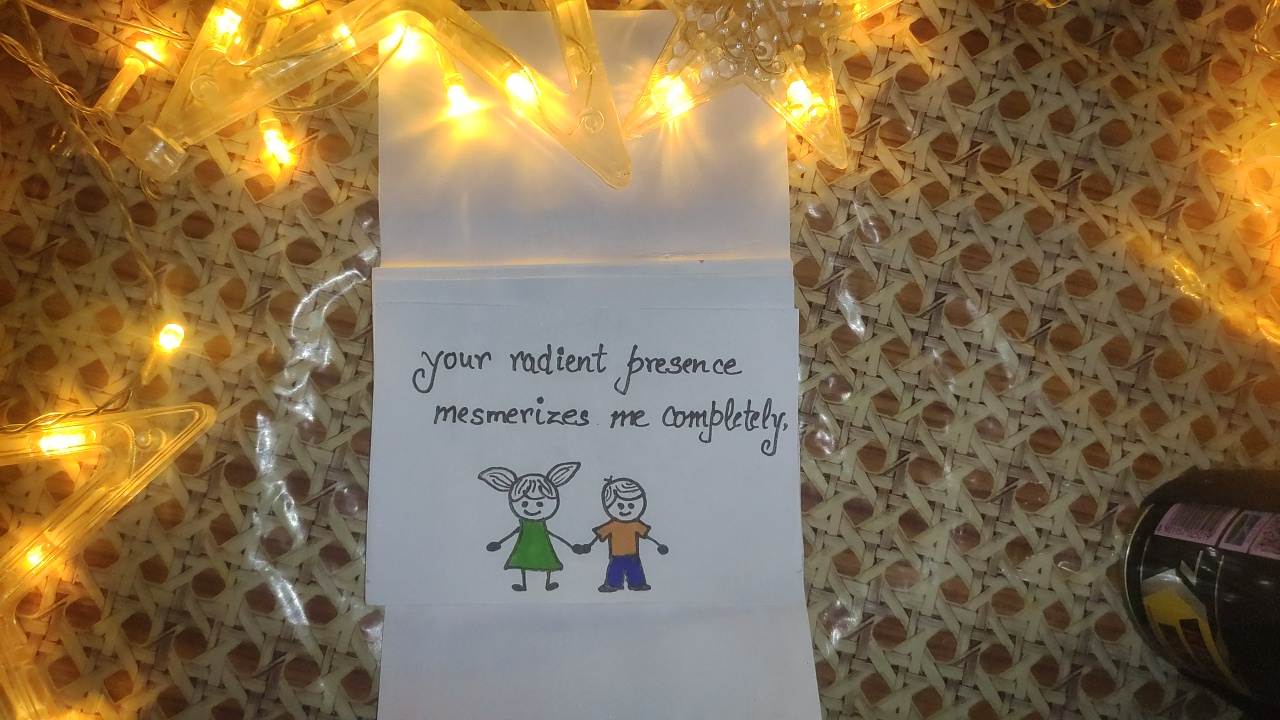 your radient presence
mesmerizes me completely.